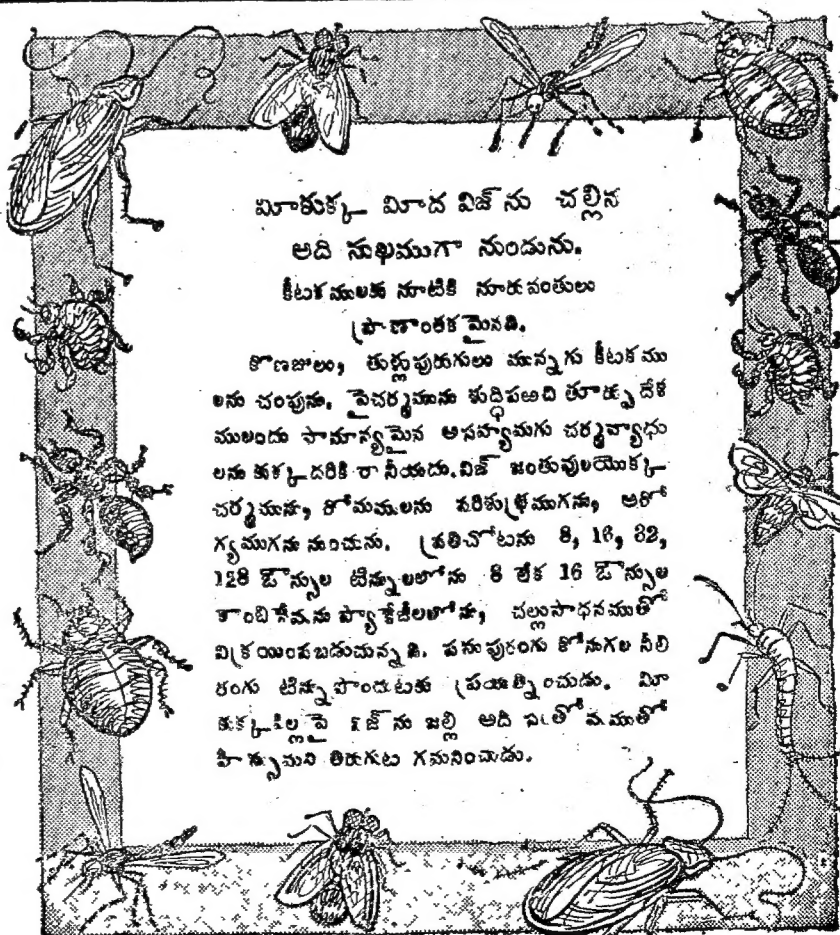 మీకుక్క మీద విజ్‌ను చల్లిన
అది సుఖముగా నుండును.
కీటకములకు నూటికి నూరువంతులు
ప్రాణాంతకమైనది.
కొణజులు, తుళ్లుపురుగులు మున్నగు కీటకము
లను చంపును. పైచర్మమును శుద్ధిపఱచి తూర్పు దేశ
ములందు సామాన్యమైన అసహ్యమగు చర్మవ్యాధు
లను కుక్కదరికి రానీయదు. విజ్ జంతువులయొక్క
చర్మమును, రోమములను పరిశుభ్రముగను, ఆరో
గ్యముగను నుంచును. ప్రతిచోటను 8, 16, 32,
128 ఔన్సుల టిన్నులలోను 8 లేక 16 ఔన్సుల
కాంబినేషను ప్యాకేజీలలోను, చల్లుసాధనముతో
విక్రయింపబడుచున్నది. పసుపురంగు కోనుగల నీలి
రంగు టిన్నుపొందుటకు ప్రయత్నించుడు. మీ
కుక్కపిల్లపై విజ్‌ను జల్లి అది సంతోషముతో
తిరుగుట గమనించుడు.